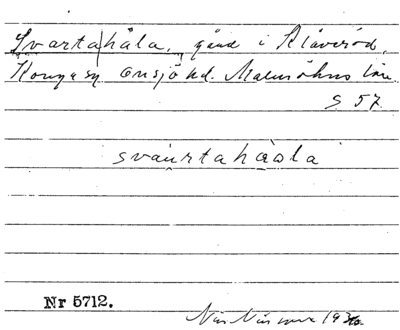 Svarta|håla, gård i Klåveröd,
Konga sn Onsjö hd. Malmöhus län
S 57.
svau̯rtahåola
Nr 5712.
Nils Nilsson 1930